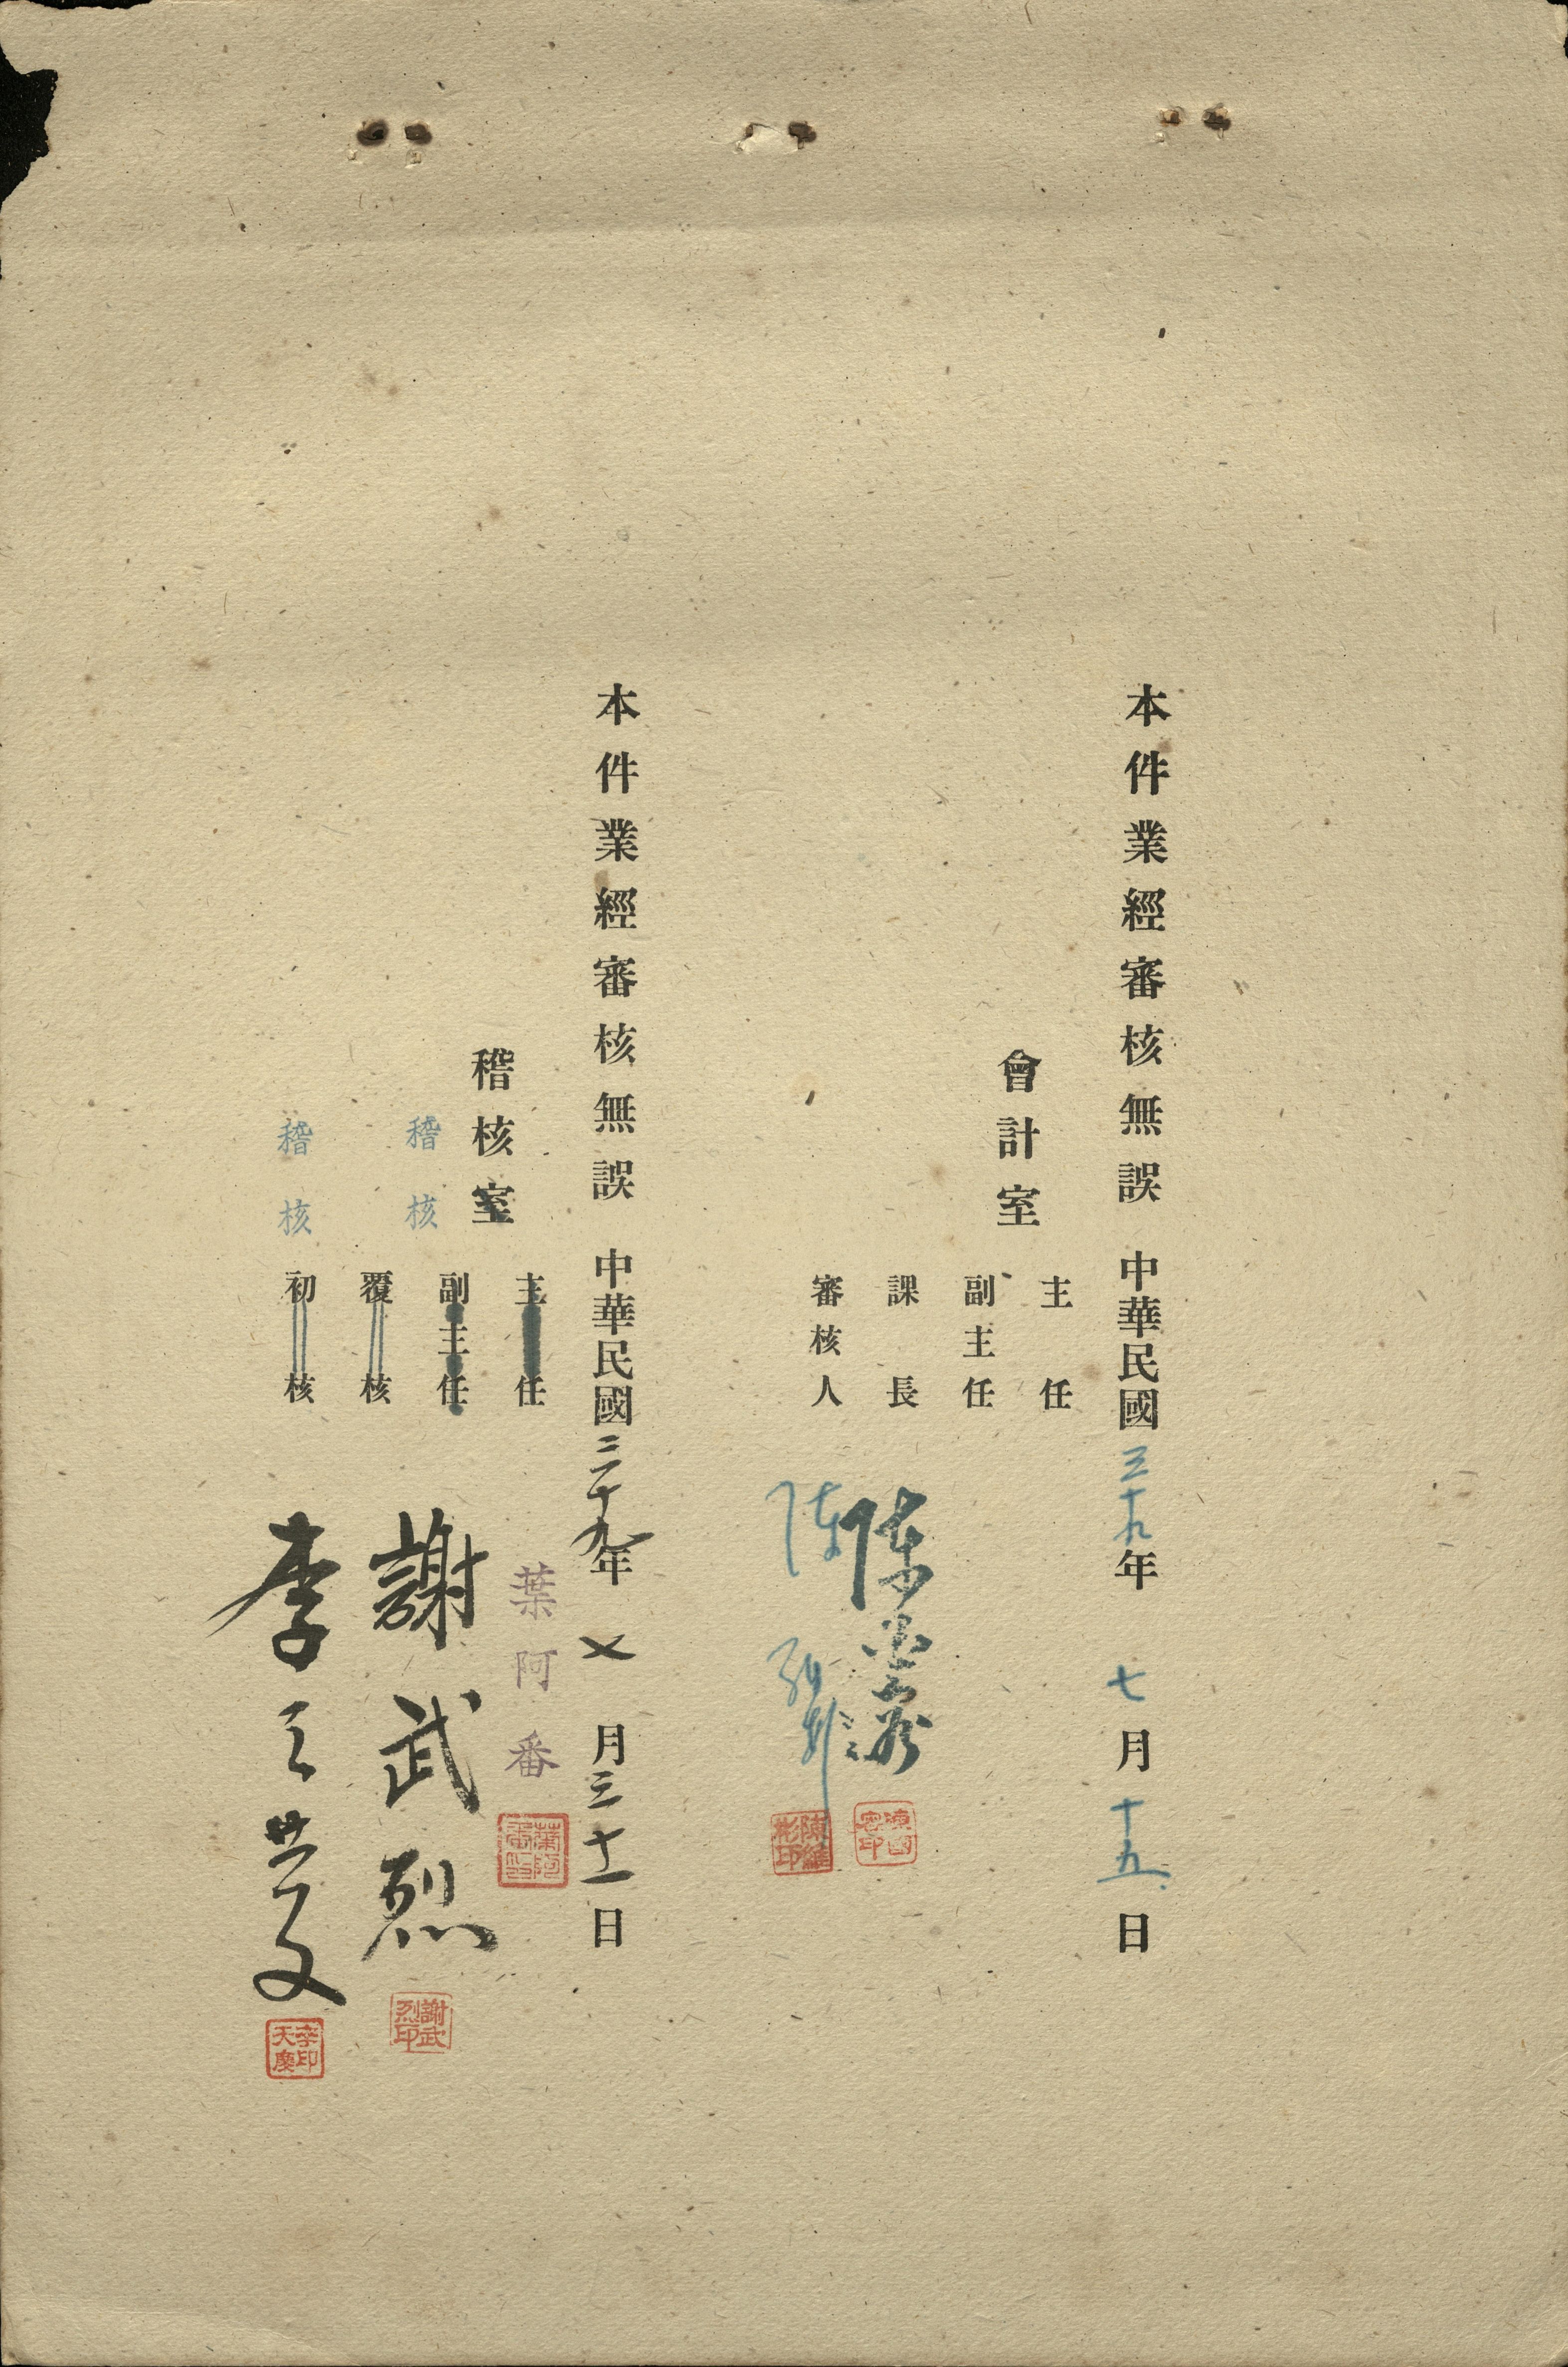 本件業經審核無誤 中華民國三十九年 七月十五日
會計室
主任
副主任
課長
陳
審核人
陳
本件業經審核無誤 中華民國三十九年 七月三十一日
稽核室
主任
葉阿番
稽核
副主任
覆核
謝武烈
謝武烈印
稽核
初核
李天慶
李印天慶